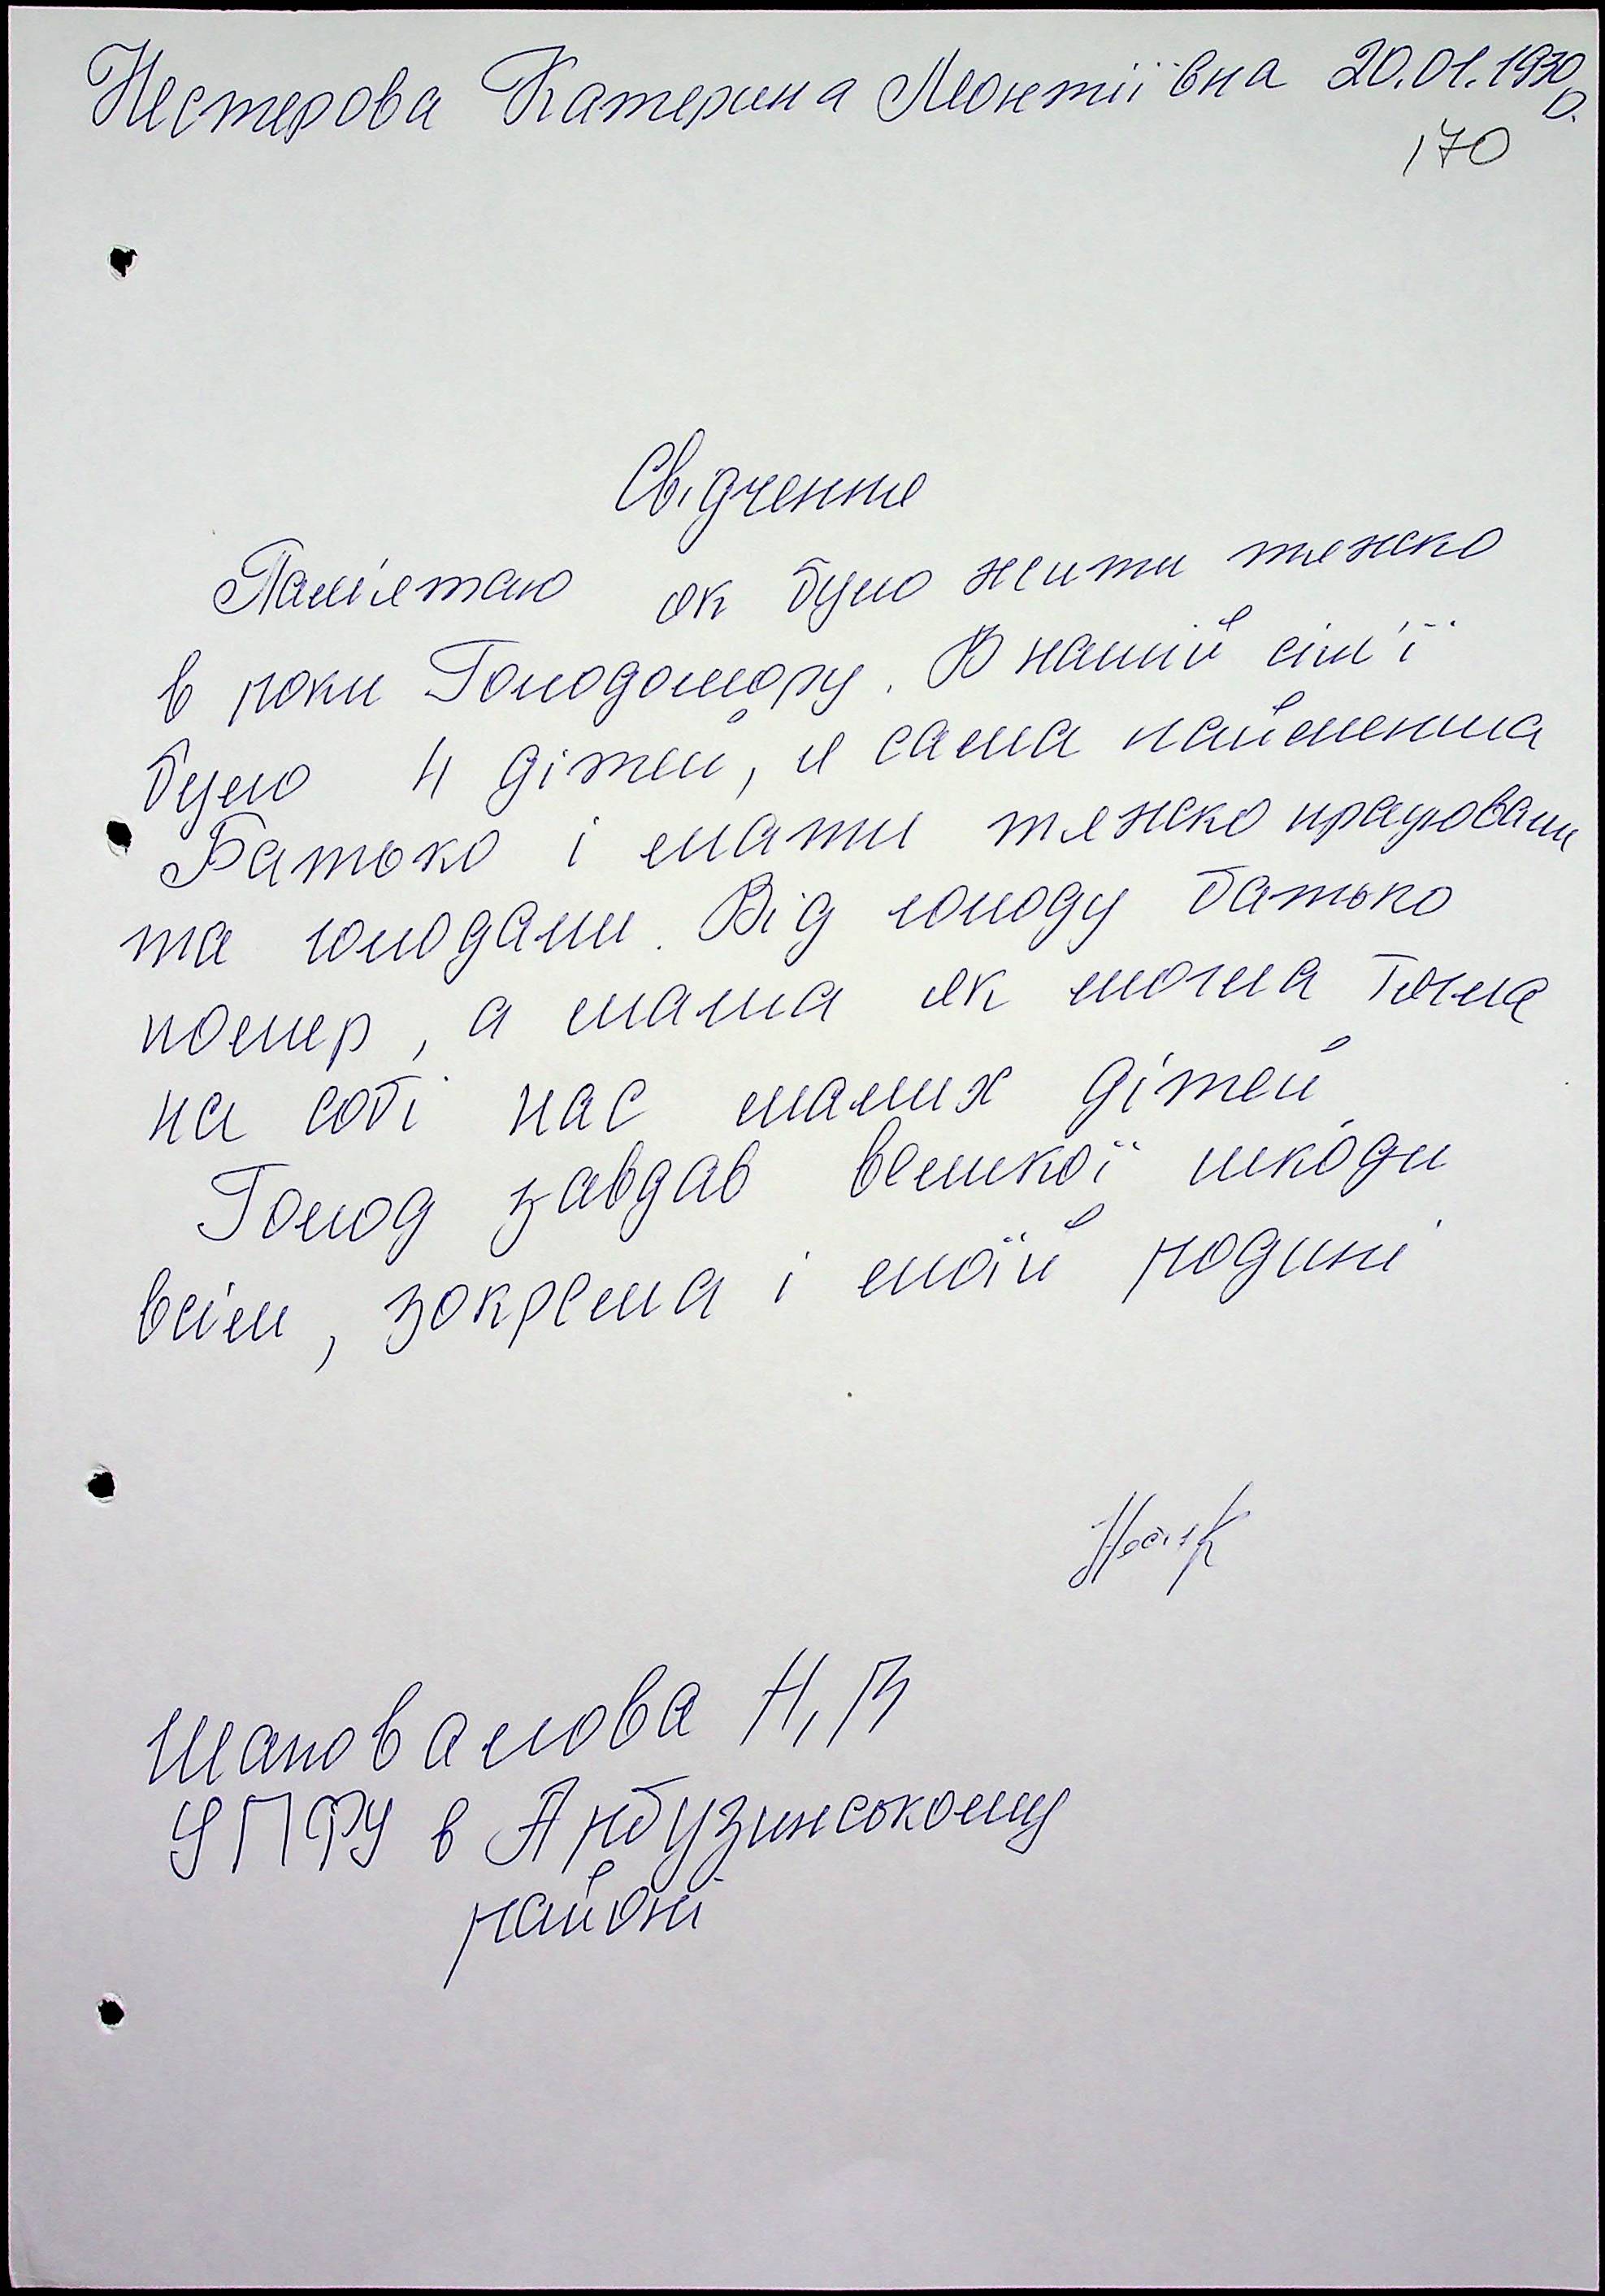 Нестерова Катерина Леонтіївна 20.01.1930
р.
170
Свідчення
Пам'ятаю як було жити тяжко
в роки Голодомору. В нашій сім'ї
було 4 дітей, я сама найменша
Батько і мати тяжко працювали
та голодали. Від голоду батько
помер, а мама як могла тягла
на собі нас малих дітей
Голод завдав великої шкоди
всім, зокрема і моїй родині
Шаповалова Н,В
УПФУ в Арбузинському
районі